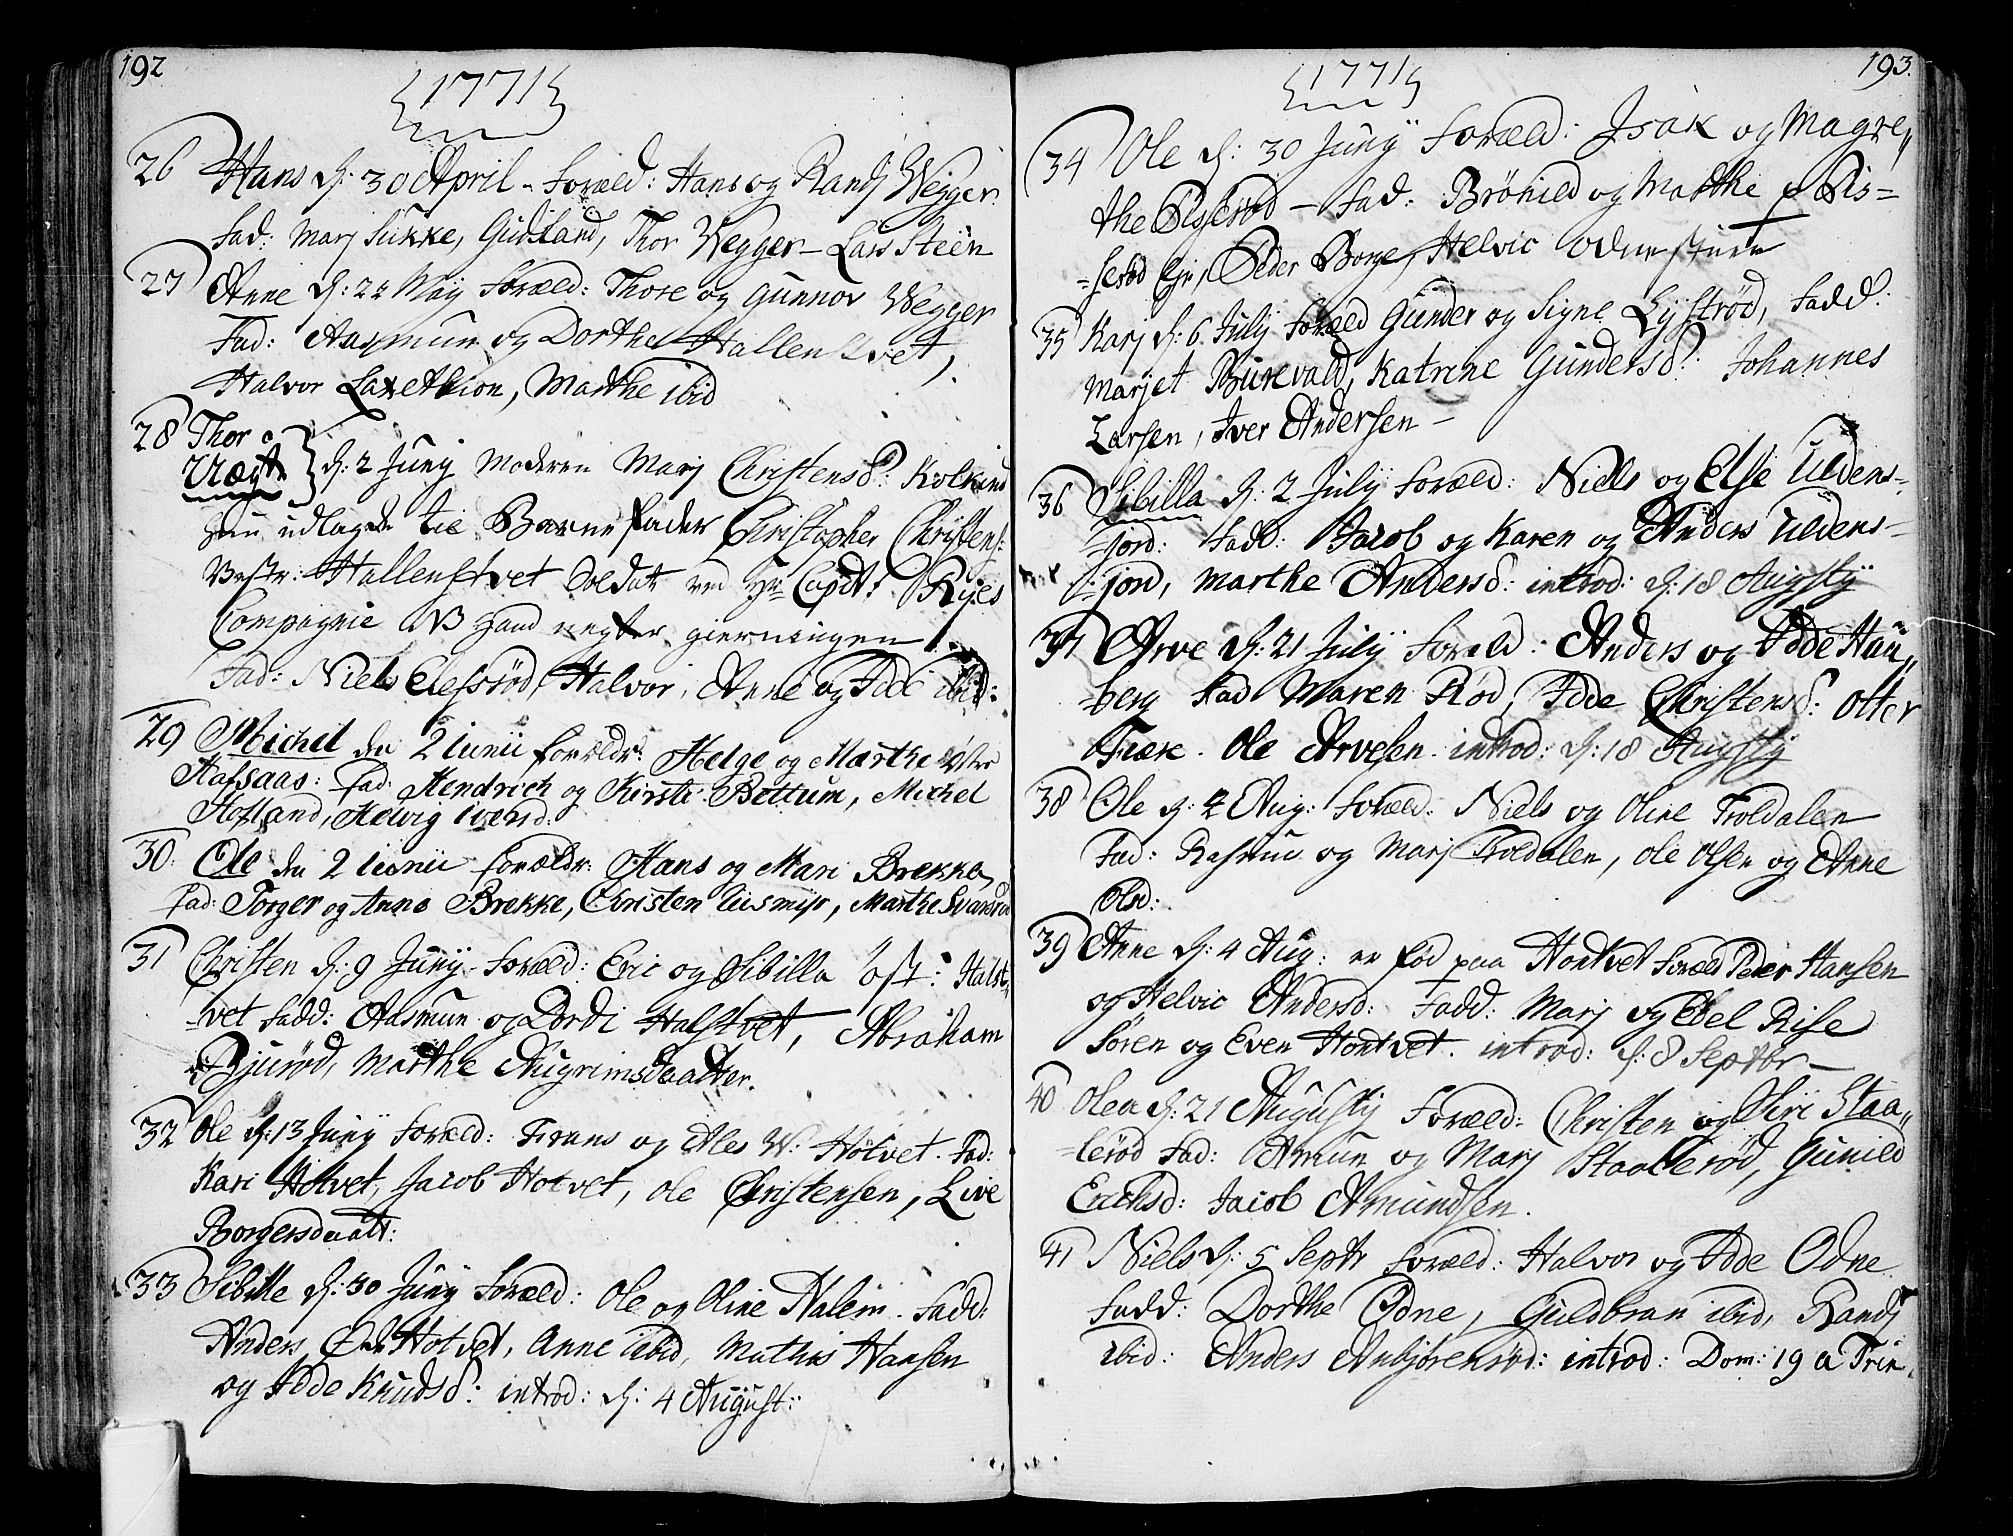 192
1771
26 Hans d: 30 April - Foræld: Hans og Randj Wegger
Fad: Marj Sukke, Gudland, Thor Wegger - Lars Steen
27 Anne d: 22 Maj Foræld: Thore og Gunnor Wegger
Fad: Aasmun og Dorthe Hallenstvet,
Halvor Laxethion, Marthe ibid
28 Thor
Uægt d: 2 Junij Moderen Marj Christensd: Kolkind
hun udlagde til Barnefader Christopher Christens:
Vestr: Hallenstvet Soldat ved Hr Capit: Ryes
Compagnie NB hand negter gierningen
Fad: Niels Elefsrød, Halvor, Anne og Idde ibid:
29 Michel den 2 Iunii forældr: Helge og Marthe Østre
Hafsaas: fad: Hendrich og Kirsti Bettum, Michel
Holland, Helvig Iversd:
30. Ole den 2 Iunii forældr: Hans og Mari Brekke,
fad: Torger og Anne Brekke, Christen Uismyr, Marthe Svansrød
31 Christen d: 9 Junij - Foræld: Eric og Sibilla Øst: Halst-
-vet Fadd: Aasmun og Dordi Halstvet, Abraham
Bjurød, Marthe Augrimsdaatter.
32 Ole d: 13 Junij Foræld: Frans og Ales W: Holvet. Fad:
Kari Holvet, Jacob Holvet, Ole Christensen, Live
Borgersdaatt:
33 Sibille d: 30 Junij Foræld: Ole og Oline Halem. Fadd:
Anders Holvet, Anne ibid, Mathis Hansen
og Idde Knudsd: introd: d: 4 August:
193.
1771
34 Ole d: 30 Junij Foræld: Isak og Magre„
the Olsserød - Fad: Brøhild og Marthe
-serød Eje, Peder Borge, Helvic Odnestuen
35 Karj d: 6 Julij Foræld Gunder og Signe Lystrød, Fadd:
Marjet Burevald, Katrine Gundersd: Johannes
Larsen, Iver Andersen -
36 Sibilla d: 2 Julij Foræld: Niels og Else Uldens-
-jord: Fadd: Jacob og Karen og Anders Uldens-
-jord, Marthe Andersd: introd: d: 18 Augsty
37 Arve d: 21 Julij Foræld: Anders og Idde Hau„
berg Fad Maren Rød, Idde Christensd: Otter
Fiære. Ole Arvesen. introd: d: 18 Augsty
38 Ole d: 4 Aug: Foræld: Niels og Oline Troldalen
Fad: Rasmus og Marj Troldalen, Ole Olsen og Anne
Olsd:
39 Anne d: 4 Aug: er fød paa Hontvet Foræld Peder Hansen
og Helvic Andersd: Fadd: Marj og Edel Rise
Søren og Even Hontvet. introd: d: 8 Septbr -
40 Olea d: 21 Augusty Foræld: Christen og Siri Staa„
-lerød Fad: Amun og Marj Staalerød, Gunild
Erichsd: Jacob Amundsen.
41 Niels d: 5 Septr Foræld: Halvor og Idde Odne
Fadd: Dorthe Odne, Guldbran ibid, Randj
ibid: Anders Anbjørensrød: introd: Dom: 19 a Trin.